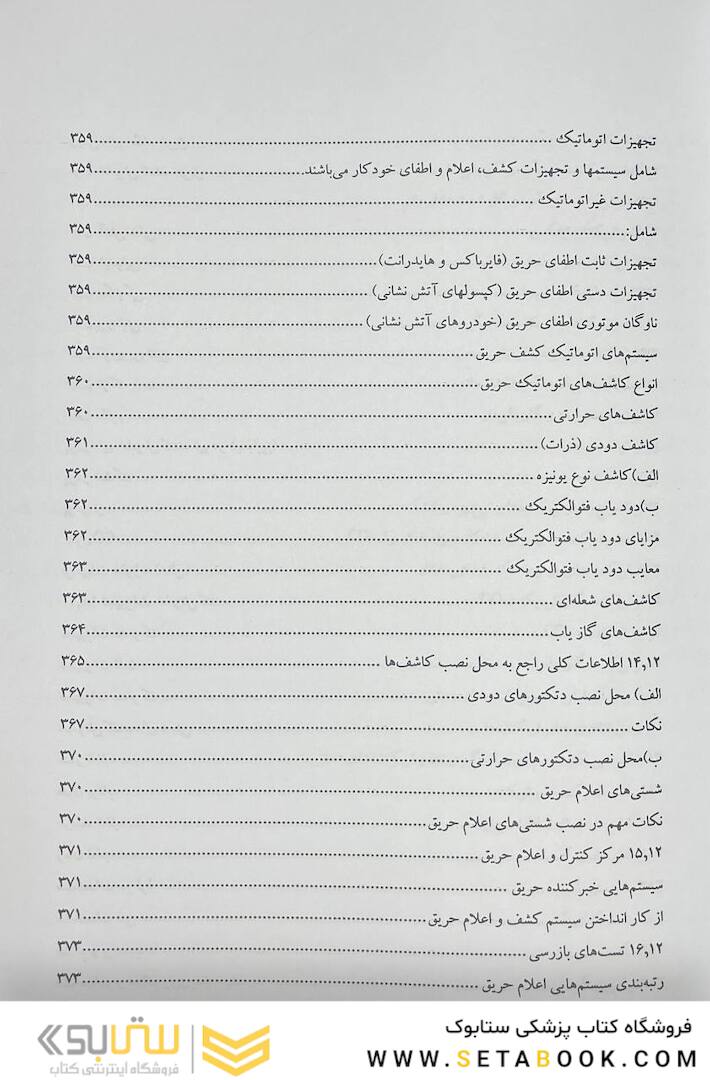 تجهیزات اتوماتیک ................ ۳۵۹
شامل سیستمها و تجهیزات کشف، اعلام و اطفای خودکار می‌باشند................ ۳۵۹
تجهیزات غیراتوماتیک ................ ۳۵۹
شامل:................ ۳۵۹
تجهیزات ثابت اطفای حریق (فایرباکس و هایدرانت)................ ۳۵۹
تجهیزات دستی اطفای حریق (کپسولهای آتش نشانی) ................ ۳۵۹
ناوگان موتوری اطفای حریق (خودروهای آتش نشانی) ................ ۳۵۹
سیستم‌های اتوماتیک کشف حریق ................ ۳۵۹
انواع کاشف‌های اتوماتیک حریق................ ۳۶۰
کاشف‌های حرارتی................ ۳۶۰
کاشف دودی (ذرات)................ ۳۶۱
الف)کاشف نوع یونیزه ................ ۳۶۲
ب)دود یاب فتوالکتریک ................ ۳۶۲
مزایای دود یاب فتوالکتریک ................ ۳۶۲
معایب دود یاب فتوالکتریک ................ ۳۶۳
کاشف‌های شعله‌ای ................ ۳۶۳
کاشف‌های گاز یاب................ ۳۶۴
۱۴,۱۲ اطلاعات کلی راجع به محل نصب کاشف‌ها ................ ۳۶۵
الف) محل نصب دتکتورهای دودی ................ ۳۶۷
نکات ................ ۳۶۷
ب)محل نصب دتکتورهای حرارتی................ ۳۷۰
شستی‌های اعلام حریق ................ ۳۷۰
نکات مهم در نصب شستی‌های اعلام حریق................ ۳۷۰
۱۵,۱۲ مرکز کنترل و اعلام حریق ................ ۳۷۱
سیستم‌هایی خبرکننده حریق ................ ۳۷۱
از کار انداختن سیستم کشف و اعلام حریق................ ۳۷۱
۱۶,۱۲ تست‌های بازرسی ................ ۳۷۳
رتبه‌بندی سیستم‌هایی اعلام حریق ................ ۳۷۳
فروشگاه کتاب پزشکی ستابوک
WWW.SETABOOK.COM
ستابوک
فروشگاه اینترنتی کتاب